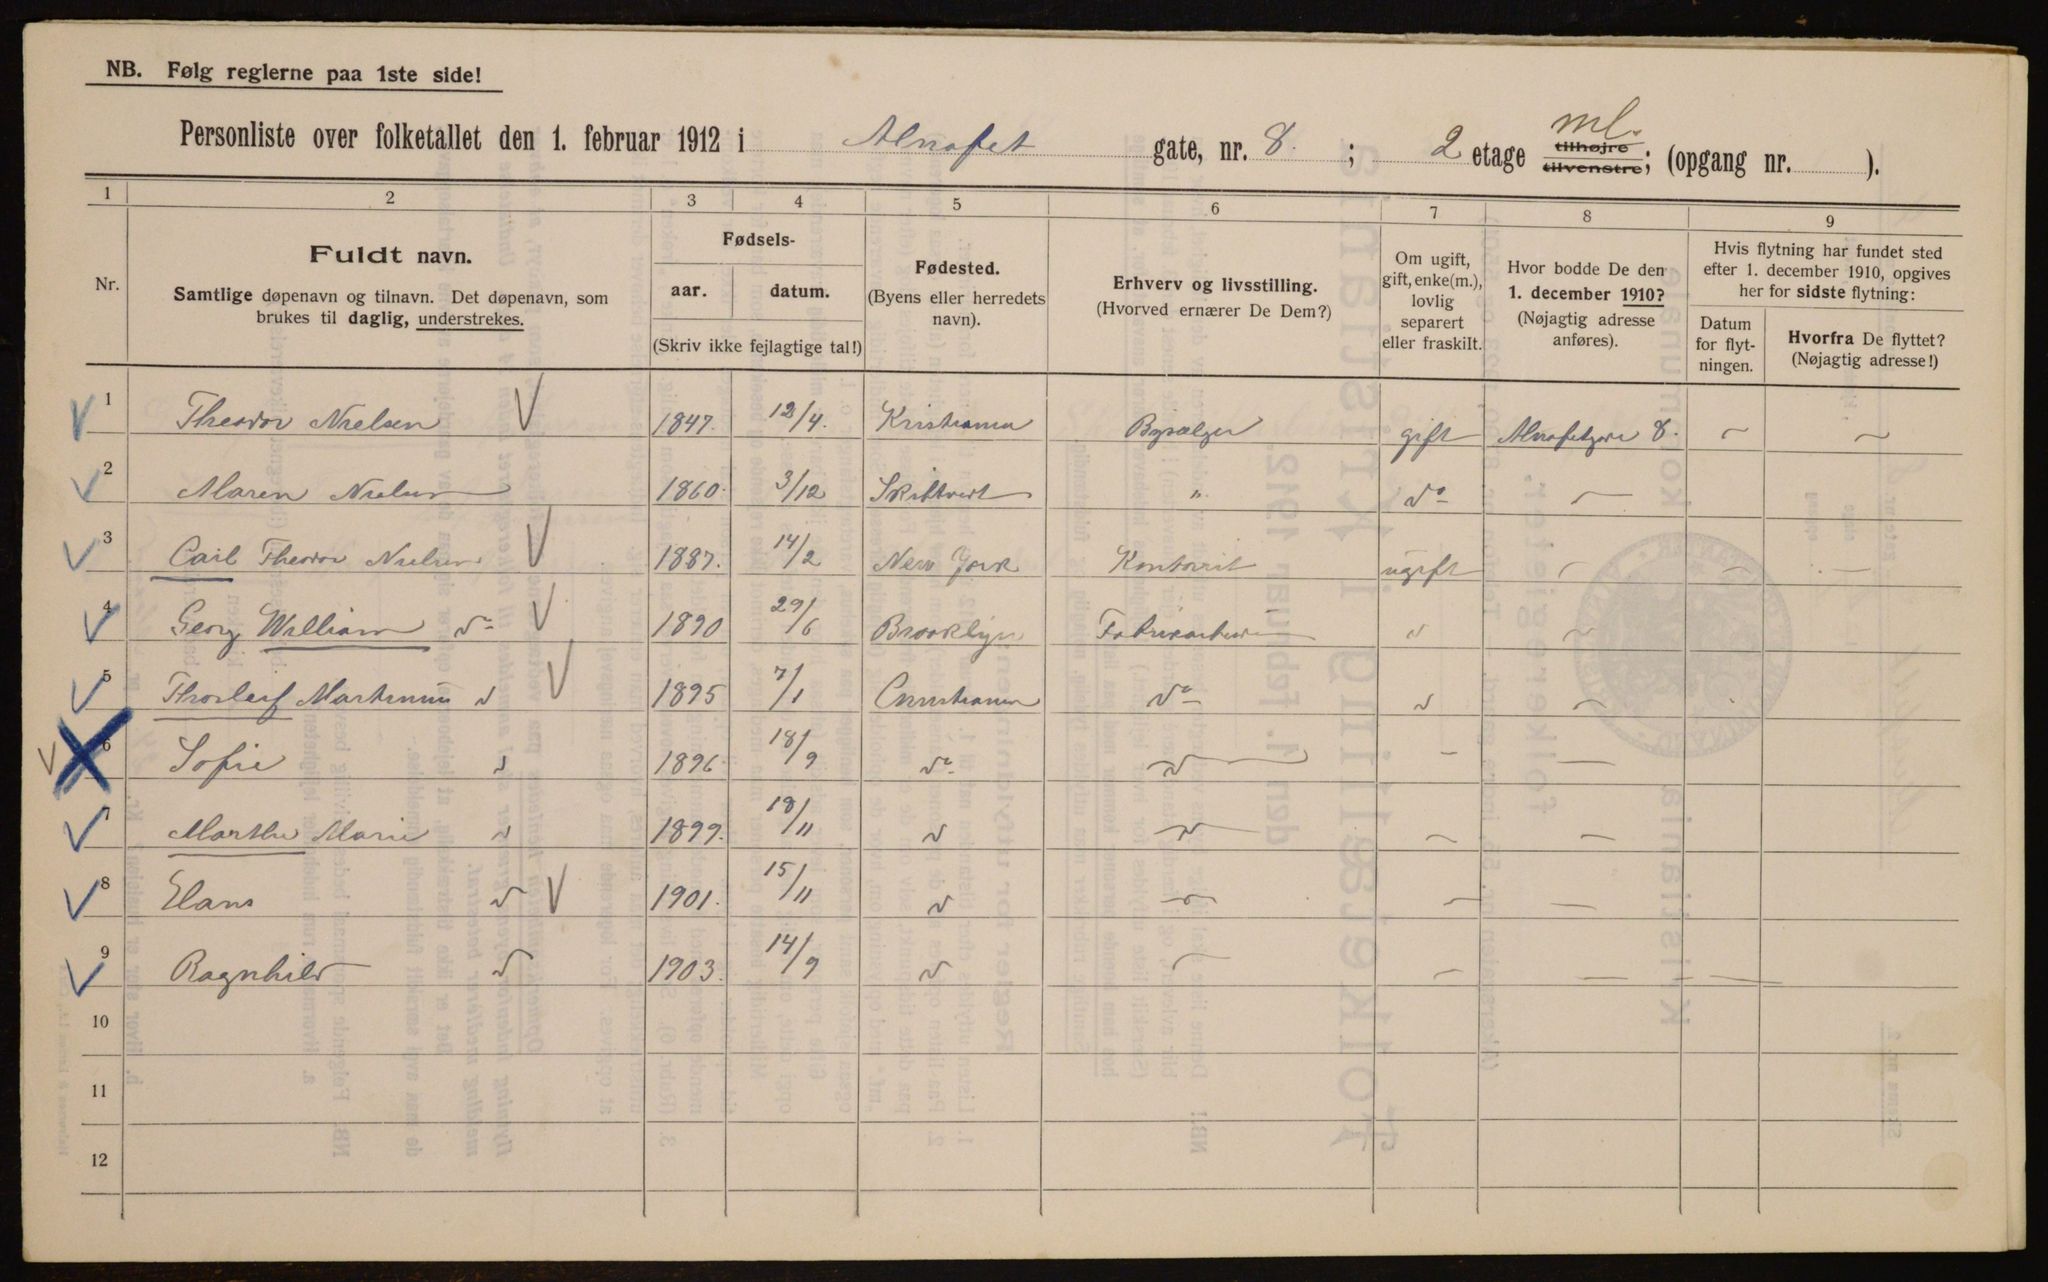 NB. Følg reglerne paa 1ste side!
Personliste over folketallet den 1. februar 1912 i Alnafet gate, nr. 8. ; 2 etage ml. tilhøjre tilvenstre; (opgang nr. ).
1 2 3 4 5 6 7 8 9
Nr.
Fuldt navn.
Samtlige døpenavn og tilnavn. Det døpenavn, som
brukes til daglig, understrekes.
Fødsels-
aar. datum.
(Skriv ikke fejlagtige tal!)
Fødested.
(Byens eller herredets
navn).
Erhverv og livsstilling.
(Hvorved ernærer De Dem?)
Om ugift,
gift, enke(m.),
lovlig
separert
eller fraskilt.
Hvor bodde De den
1. december 1910?
(Nøjagtig adresse
anføres).
Hvis flytning har fundet sted
efter 1. december 1910, opgives
her for sidste flytning:
Datum
for flyt-
ningen.
Hvorfra De flyttet?
(Nøjagtig adresse!)
1 Theodor Nielsen 1847. 12/4. Kristiania gift 8.
2 Maren Nielsen 1860. 3/12 Skibtvert " do
3 Carl Theodor Nielsen 1887. 14/2 New York Kontorist ugift
4 Georg William do 1890 29/6 Brooklyn Fabrikarbeider
5 Thorleif Martinius 1895 7/1 Christiania do
6 Sofie 1896. 18/9 do
7 Marthe Marie 1899. 18/11
8 Hans 1901. 15/11
9 Ragnhild 1903. 14/9
10
11
12